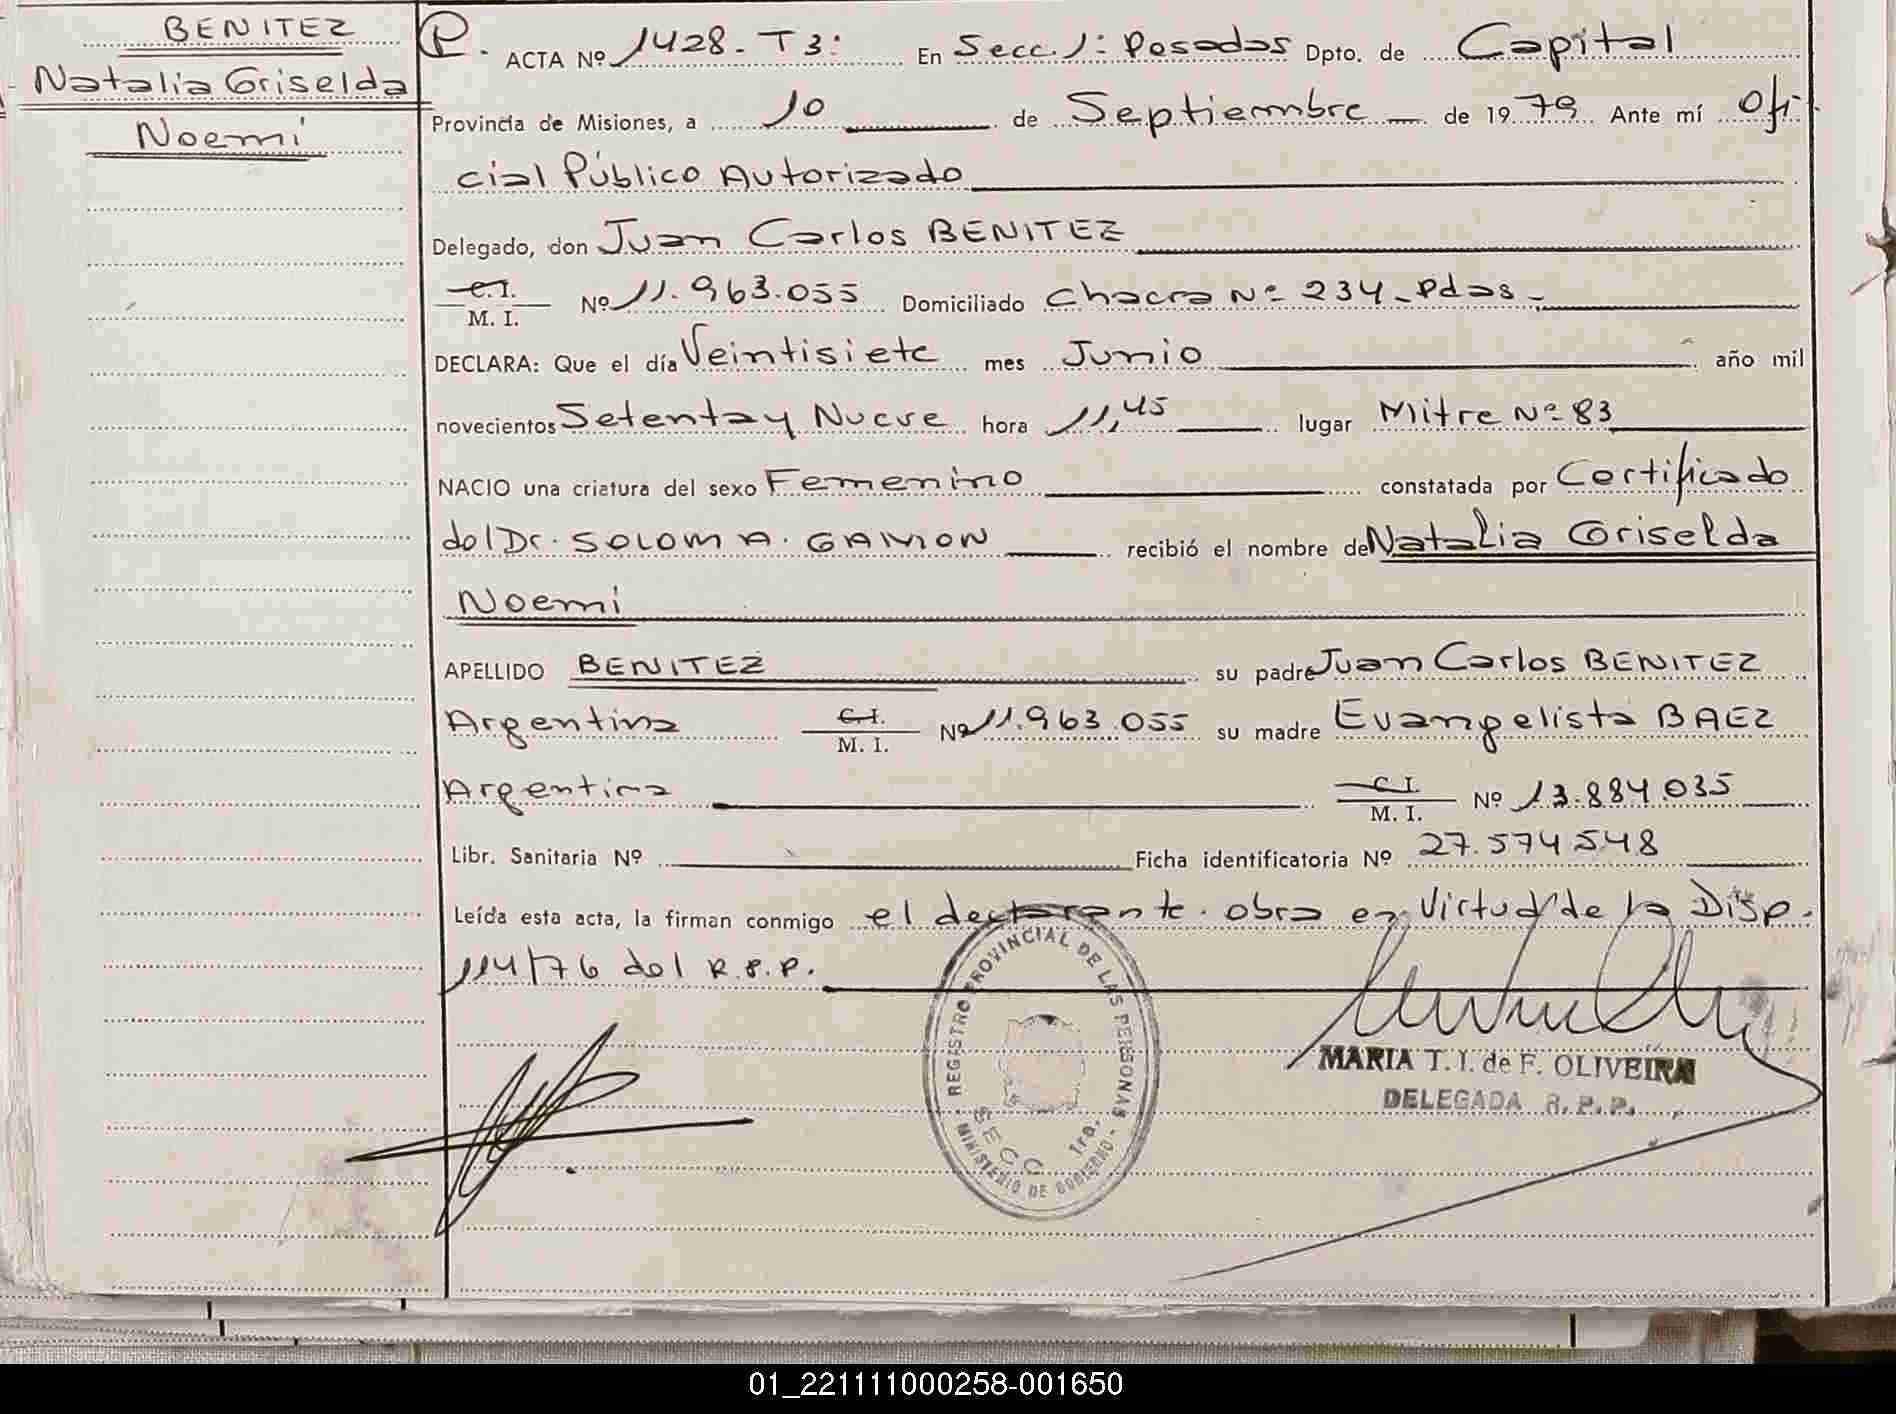 BENITEZ
Natalia Griselda
Noemi
P. ACTA Nº 1428. T3: En Secc. 1: Posadas Dpto. de Capital
Provincia de Misiones, a 10 de Septiembre de 1979 Ante mí Ofi
cial Público Autorizado
Delegado, don Juan Carlos BENITEZ
C.I.
M. I. Nº 11.963.055 Domiciliado Chacra Nº 234_Pdas_
DECLARA: Que el día Veintisiete mes Junio año mil
novecientos Setenta y Nueve hora 11,45 lugar Mitre Nº 83
NACIO una criatura del sexo Femenino constatada por Certificado
del Dr. SOLOM A. recibió el nombre de Natalia Griselda
Noemi
APELLIDO BENITEZ su padre Juan Carlos BENITEZ
Argentina C.I. M. I. Nº 11.963.055 su madre Evangelista BAEZ
Argentina C.I. M. I. Nº 13.884.035
Libr. Sanitaria Nº Ficha identificatoria Nº 27.574548
Leída esta acta, la firman conmigo el declarante. obra en Virtud de la Disp.
114/76 del R.P.P.
REGISTRO PROVINCIAL DE LAS PERSONAS
SECC 1ra.
MINISTERIO DE GOBIERNO
MARIA T. I. de F. OLIVEIRA
DELEGADA R. P. P.
01_221111000258-001650